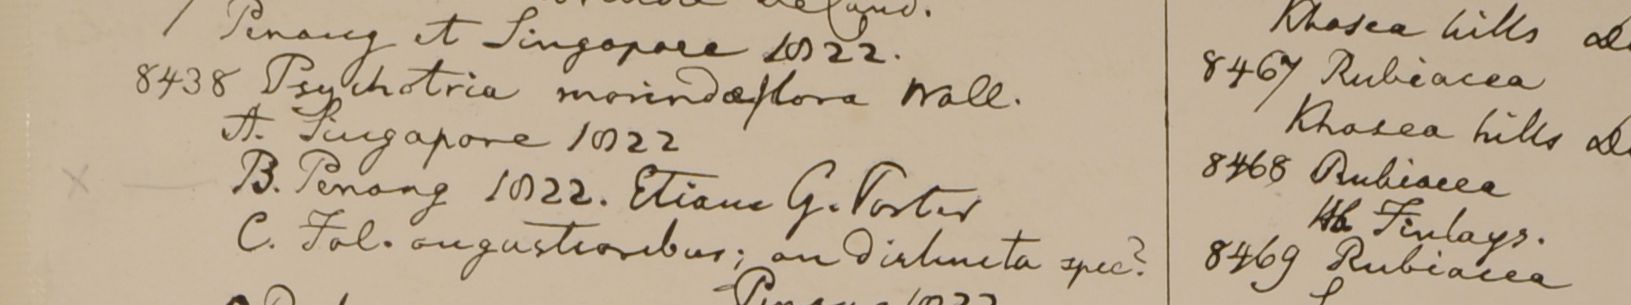 Penang et Singapore 1822.
8438 Psychotria morindæflora Wall.
A. Singapore 1822
B. Penang 1822. Etiam G. Porter
C. Fol. angustioribus; an distincta spec?
Penang 1822
Khasea hills
8467 Rubiacea
Khasea hills
8468 Rubiacea
Hb Finlays.
8469 Rubiacea